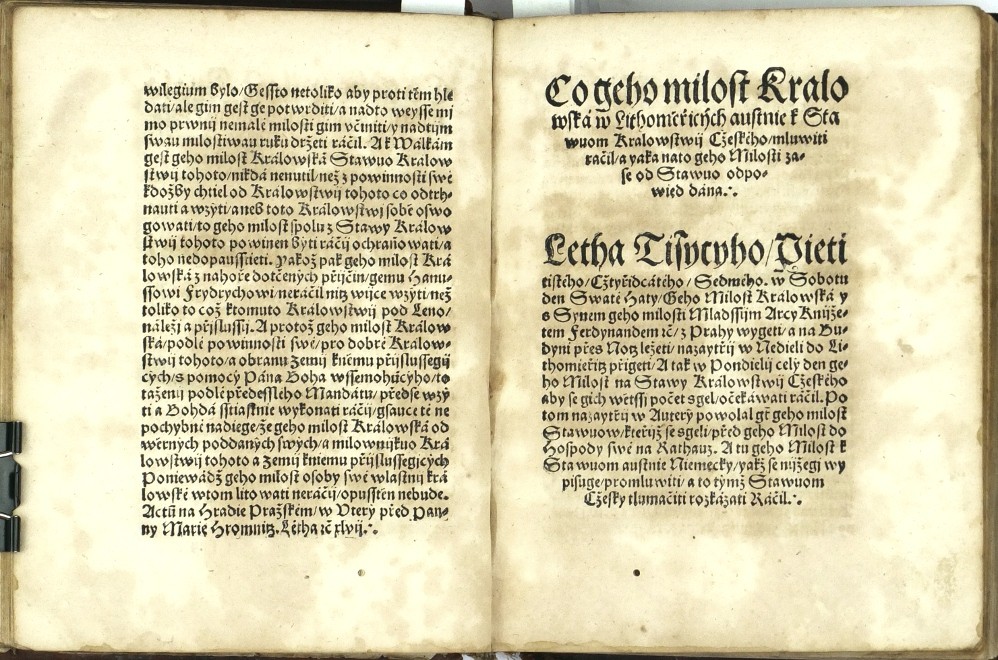 wilegium bylo/Gessto netoliko aby proti tém hle
dati/ale gim gest ge potwrditi/a nadto weysse mi
mo prwnij nemalé milosti gim včiniti/y nadtým
swau milostiwau ruku držeti ráčil. A k Walkám
gest geho milost Králowská Stawuo Králow
stwij tohoto/nikdá nenutil/než z powinnosti swé
kdožby chtiel od Králowstwij tohoto co odtrh-
nauti a wzýti/aneb toto Králowstwj sobě oswo
gowati/to geho milost spolu z Stawy Králow
stwij tohoto powinen býti ráčij ochraňowati/a
toho nedopaussteti. Yakož pak geho milost Krá
lowská z nahoře dotčených přijčin/gemu Hanu-
ssowi Frydrychowi/neráčil nitz wijce wzýti/než
toliko to což ktomuto Králowstwij pod Leno/
náležj a přjslussij. A protož geho milost Králow
ská/podlé powinnosti swé/pro dobré Králow-
stwij tohoto/a obranu Zemij kněmu přijslussegij
cých/s pomocý Pána Boha wssemohúcýho/to
taženij podlé předesslého Mandátu/předse wzý
ti a Bohdá sstiastnie wykonati ráčij/gsauce té ne
pochybné nadiege/že geho milost Králowská od
wěrných poddaných swých/a milownijkuo Krá
lowstwij tohoto a Zemij kniemu přijslussegicých
Poniewádž geho milost osoby swé wlastnij krá
lowské wtom litowati neráčij/opusstén nebude.
Actū na Hradie Pražském/w Vterý před Pan-
ny Marie Hromnitz. Létha ꝛč xlvij.
Co geho milost Kralo
wská w̄ Lithoměřicých austnie k Sta
wuom Kralowstwij Cžeského/mluwiti
ráčil/a yaka nato geho Milosti za-
se od Stawuo odpo-
wied dána.
Letha Tisycyho/Pieti
stého/Cžtyřidcátého/Sedmého. w Sobotu
den Swaté Háty/Geho Milost Králowská y
s Synem geho milosti Mladssijm Arcy Knijže-
tem Ferdynandem ꝛč/z Prahy wygeti/a na Bu-
dyni přes Notz ležeti/nazaytřij w Nedieli do Li-
thoměřitz přigeti/A tak w Pondielij celý den ge-
ho Milost na Stawy Králowstwij Cžeského
aby se gich wětssij počet sgel/očekáwati ráčil. Po
tom nazaytřij w Auterý powolal gſ̄ geho milost
Stawuow/kteřijž se sgeli/před geho Milost do
Hospody swé na Rathauz. A tu geho Milost k
Stawuom austnie Niemecky/yakž se nijžegi wy
pisuge/promluwiti/a to týmž Stawuom
Cžesky tlumačiti rozkázati Ráčil.